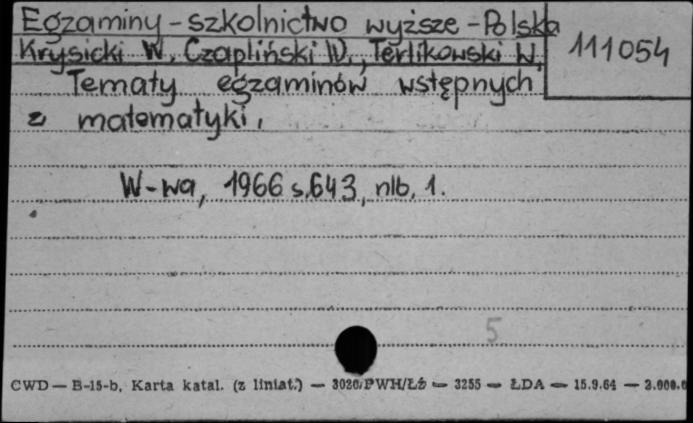 Egzaminy - szkolnictwo wyższe - Polska
111054
Krysicki W., Czapliński W., Terlikowski W.
Tematy egzaminów wstępnych
z matematyki.
W-wa, 1966 s. 643, nlb. 1.
5
CWD — B-15-b, Karta katal. (z liniat.) — PWH/ŁŚ — 3255 — ŁDA — 15.9.64 —